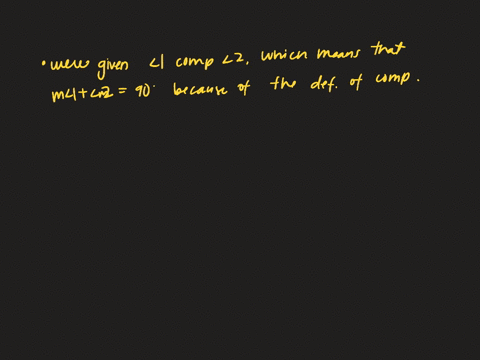 • were given <1 comp <2, which means that
m<1+<m2 = 90° because of the def. of comp.